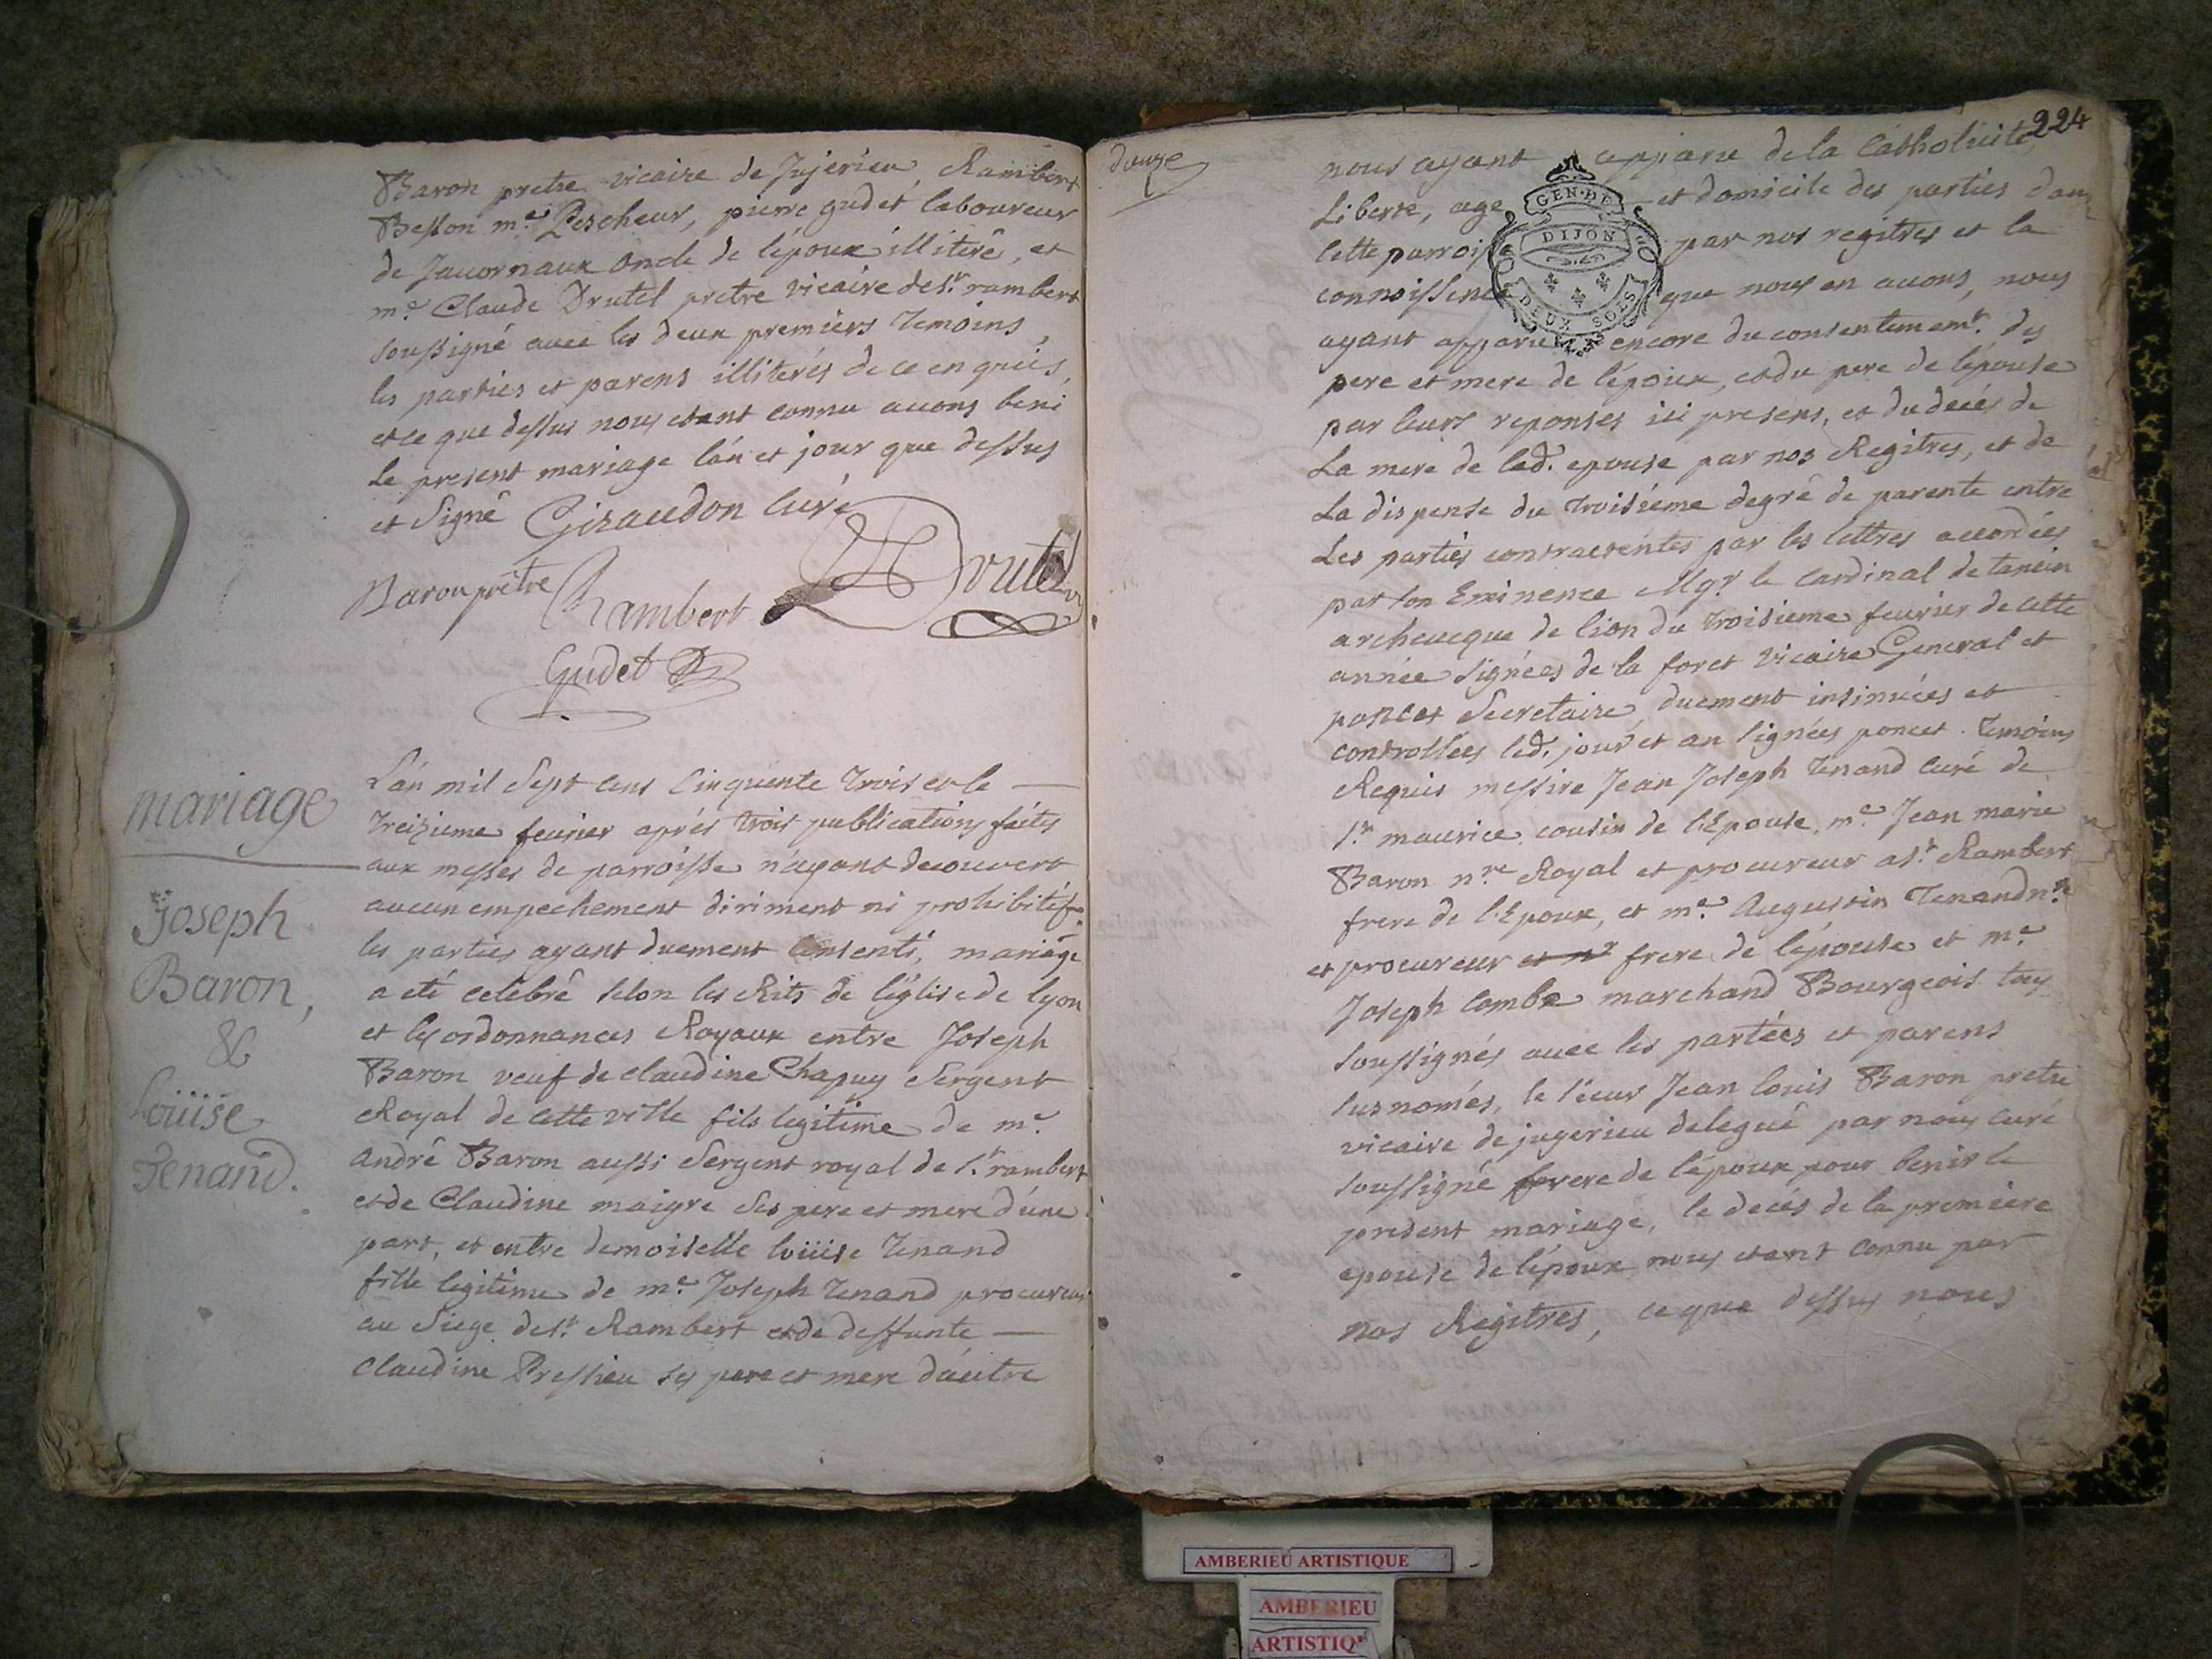 Baron pretre vicaire de Jujerieu Rambert
Besson me. Pescheur, pierre gudet laboureur
de Jauornaux oncle de l'époux illiterê, et
me. Claude Drutel pretre vicaire de st. rambert
soussigné avec les deux premiers temoins,
les parties et parens illiterés de ce enquis,
et ce que dessus nous etant connu avons beni
Le present mariage l'an et jour que dessus
et signê Giraudon Curé
Baron prêtre Rambert Drutel
Gudet
mariage
Joseph
Baron,
&
Loüise
Tenand.
L'an mil sept cens Cinquente trois et le
treizieme feurier aprés trois publications faites
aux messes de parroisse n'ayant decouvert
aucun empechement diriment ni prohibitif.
les parties ayant duement consenti, mariage
a eté celebrê selon les Rits de l'église de lyon
et les ordonnances Royaux entre Joseph
Baron veuf de claudine Chapuy Sergent
Royal de cette ville fils legitime de me.
andrê Baron aussi Sergent royal de st. rambert
et de Claudine maigre ses pere et mere d'une
part, et entre demoiselle loüise tenand
fille legitime de me. Joseph tenand procureur
au Siege de st. Rambert et de deffunte
claudine Pressieu ses pere et mere d'autre
224
nous ayant apparu de la Catholicité,
Liberte, age et domicile des parties dans
Cette parroisse par nos regitres et la
connoissence que nous en avons, nous
ayant apparu encore du consentement. des
pere et mere de l'époux, et du pere de l'épouse
par leurs reponses ici presens, et du decés de
La mere de lad. epouse par nos Regitres, et de
La dispense du troisieme degrê de parente entre
Les parties contractentes par les lettres accordées
par son Eminence Mgr. le cardinal de tancin
archeveque de lion du troisieme feurier de cette
année signées de la foret vicaire General et
poncet Secretaire duement insinuées et
controllées led. jour et an signées poncet. temoins
Requis messire Jean Joseph tenand curé de
st. maurice cousin de l'Epouse, me. Jean marie
Baron nre. Royal et procureur a st. Rambert
frere de l'Epoux, et me. Augustin Tenand nre.
et procureur frere de l'épouse et me.
Joseph Combe marchand Bourgeois tous
soussignés avec les parties et parens
susnomés, le sieur Jean louis Baron pretre
vicaire de jugerieu deleguê par nous curé
soussigné frere de l'époux pour benir le
present mariage, le decés de la premiere
epouse de l'époux nous etant connu par
nos Regitres, ce que dessus nous
GEN. DE
DIJON
DEUX SOLS
AMBERIEU ARTISTIQUE
AMBERIEU
ARTISTIQ